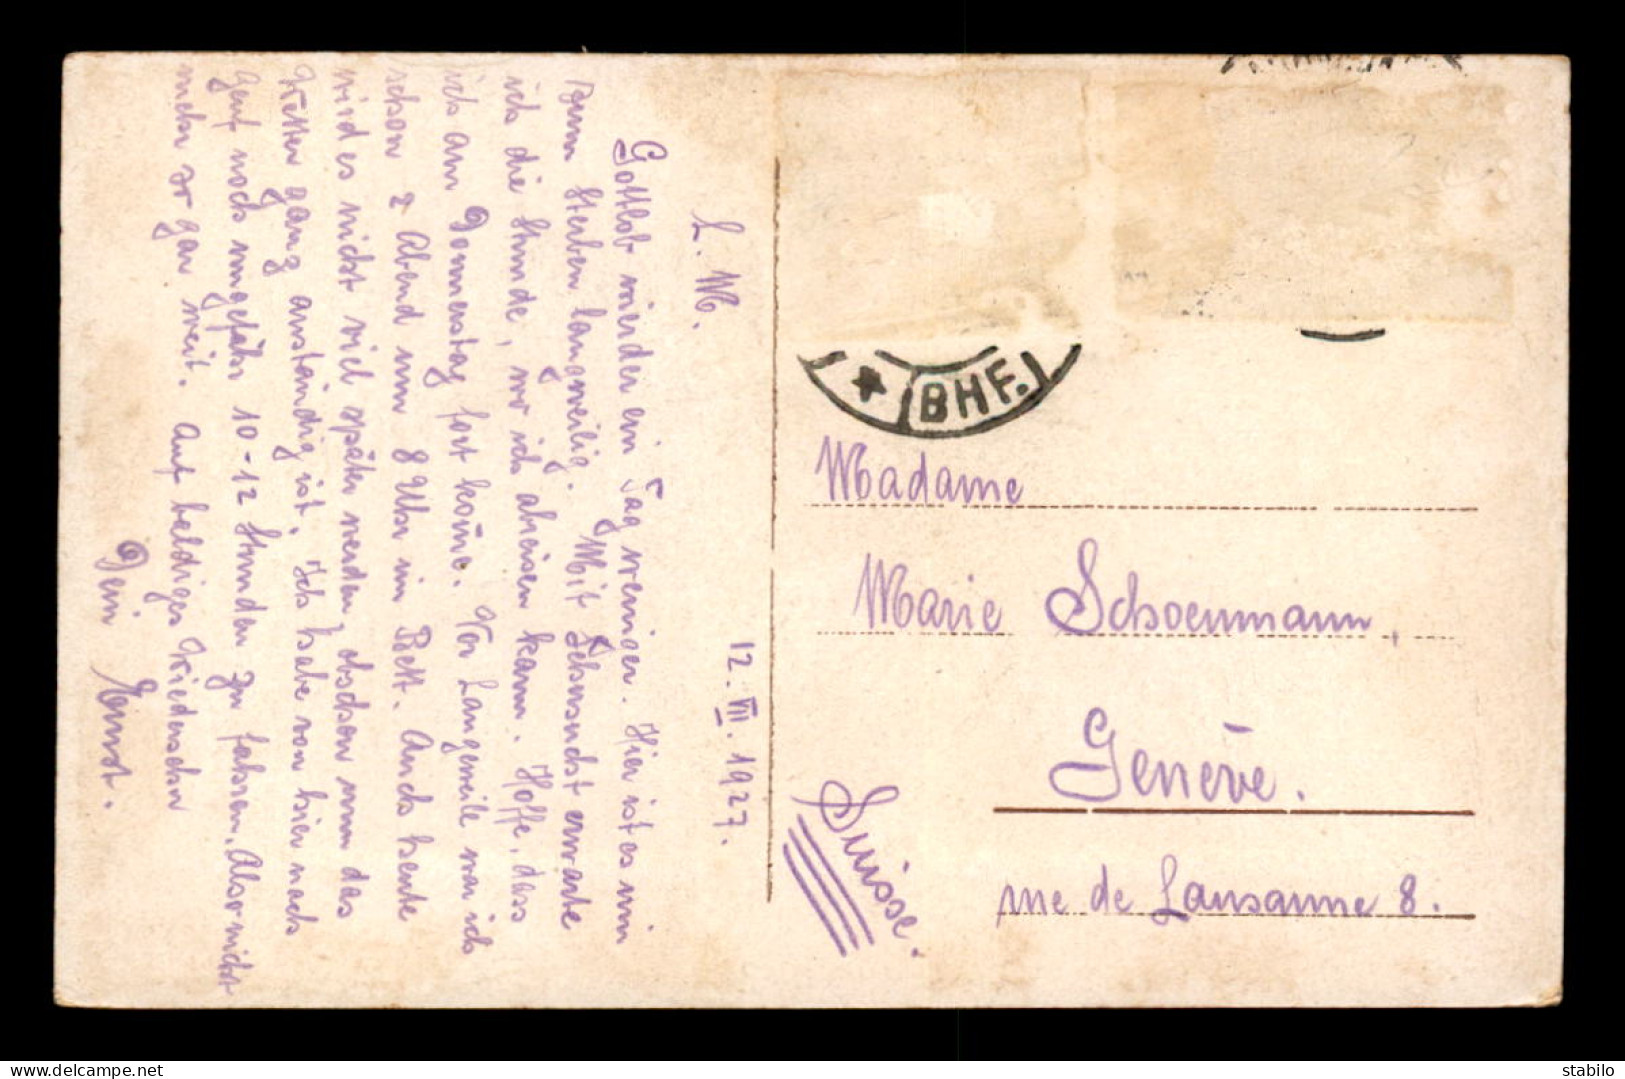 12. VII. 1927.
L. M.
Gottlob wieder ein Tag weniger. Hier ist es nun
zum Sterben langweilig. Mit Sehnsucht erwarte
ich die Stunde, wo ich abreisen kann. Hoffe, dass
ich am Donnerstag fort kome. Vor Langeweile war ich
schon 2 Abend um 8 Uhr im Bett. Auch heute
wird es nicht viel später werden, obschon nun das
Wetter ganz anständig ist. Ich habe von hier nach
Genf noch ungefähr 10-12 Stunden zu fahren. Also nicht
mehr so gar weit. Auf baldiges Wiedersehn
Dein Ernst.
* BHF.
Madame
Marie Schoenmann,
Genève.
Suisse.
rue de Lausanne 8.
delcampe.net
stabilo